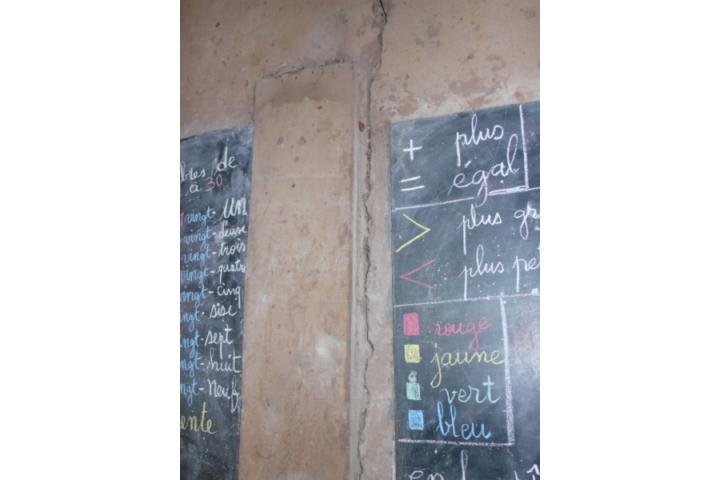 de
à 30
vingt- un
vingt- deux
vingt- trois
vingt- quatre
vingt- cinq
vingt- sise
ngt- sept
ngt- huit
ngt- Neuf
ente
+ plus
= égal
> plus gr
< plus pet
rouge
jaune
vert
bleu